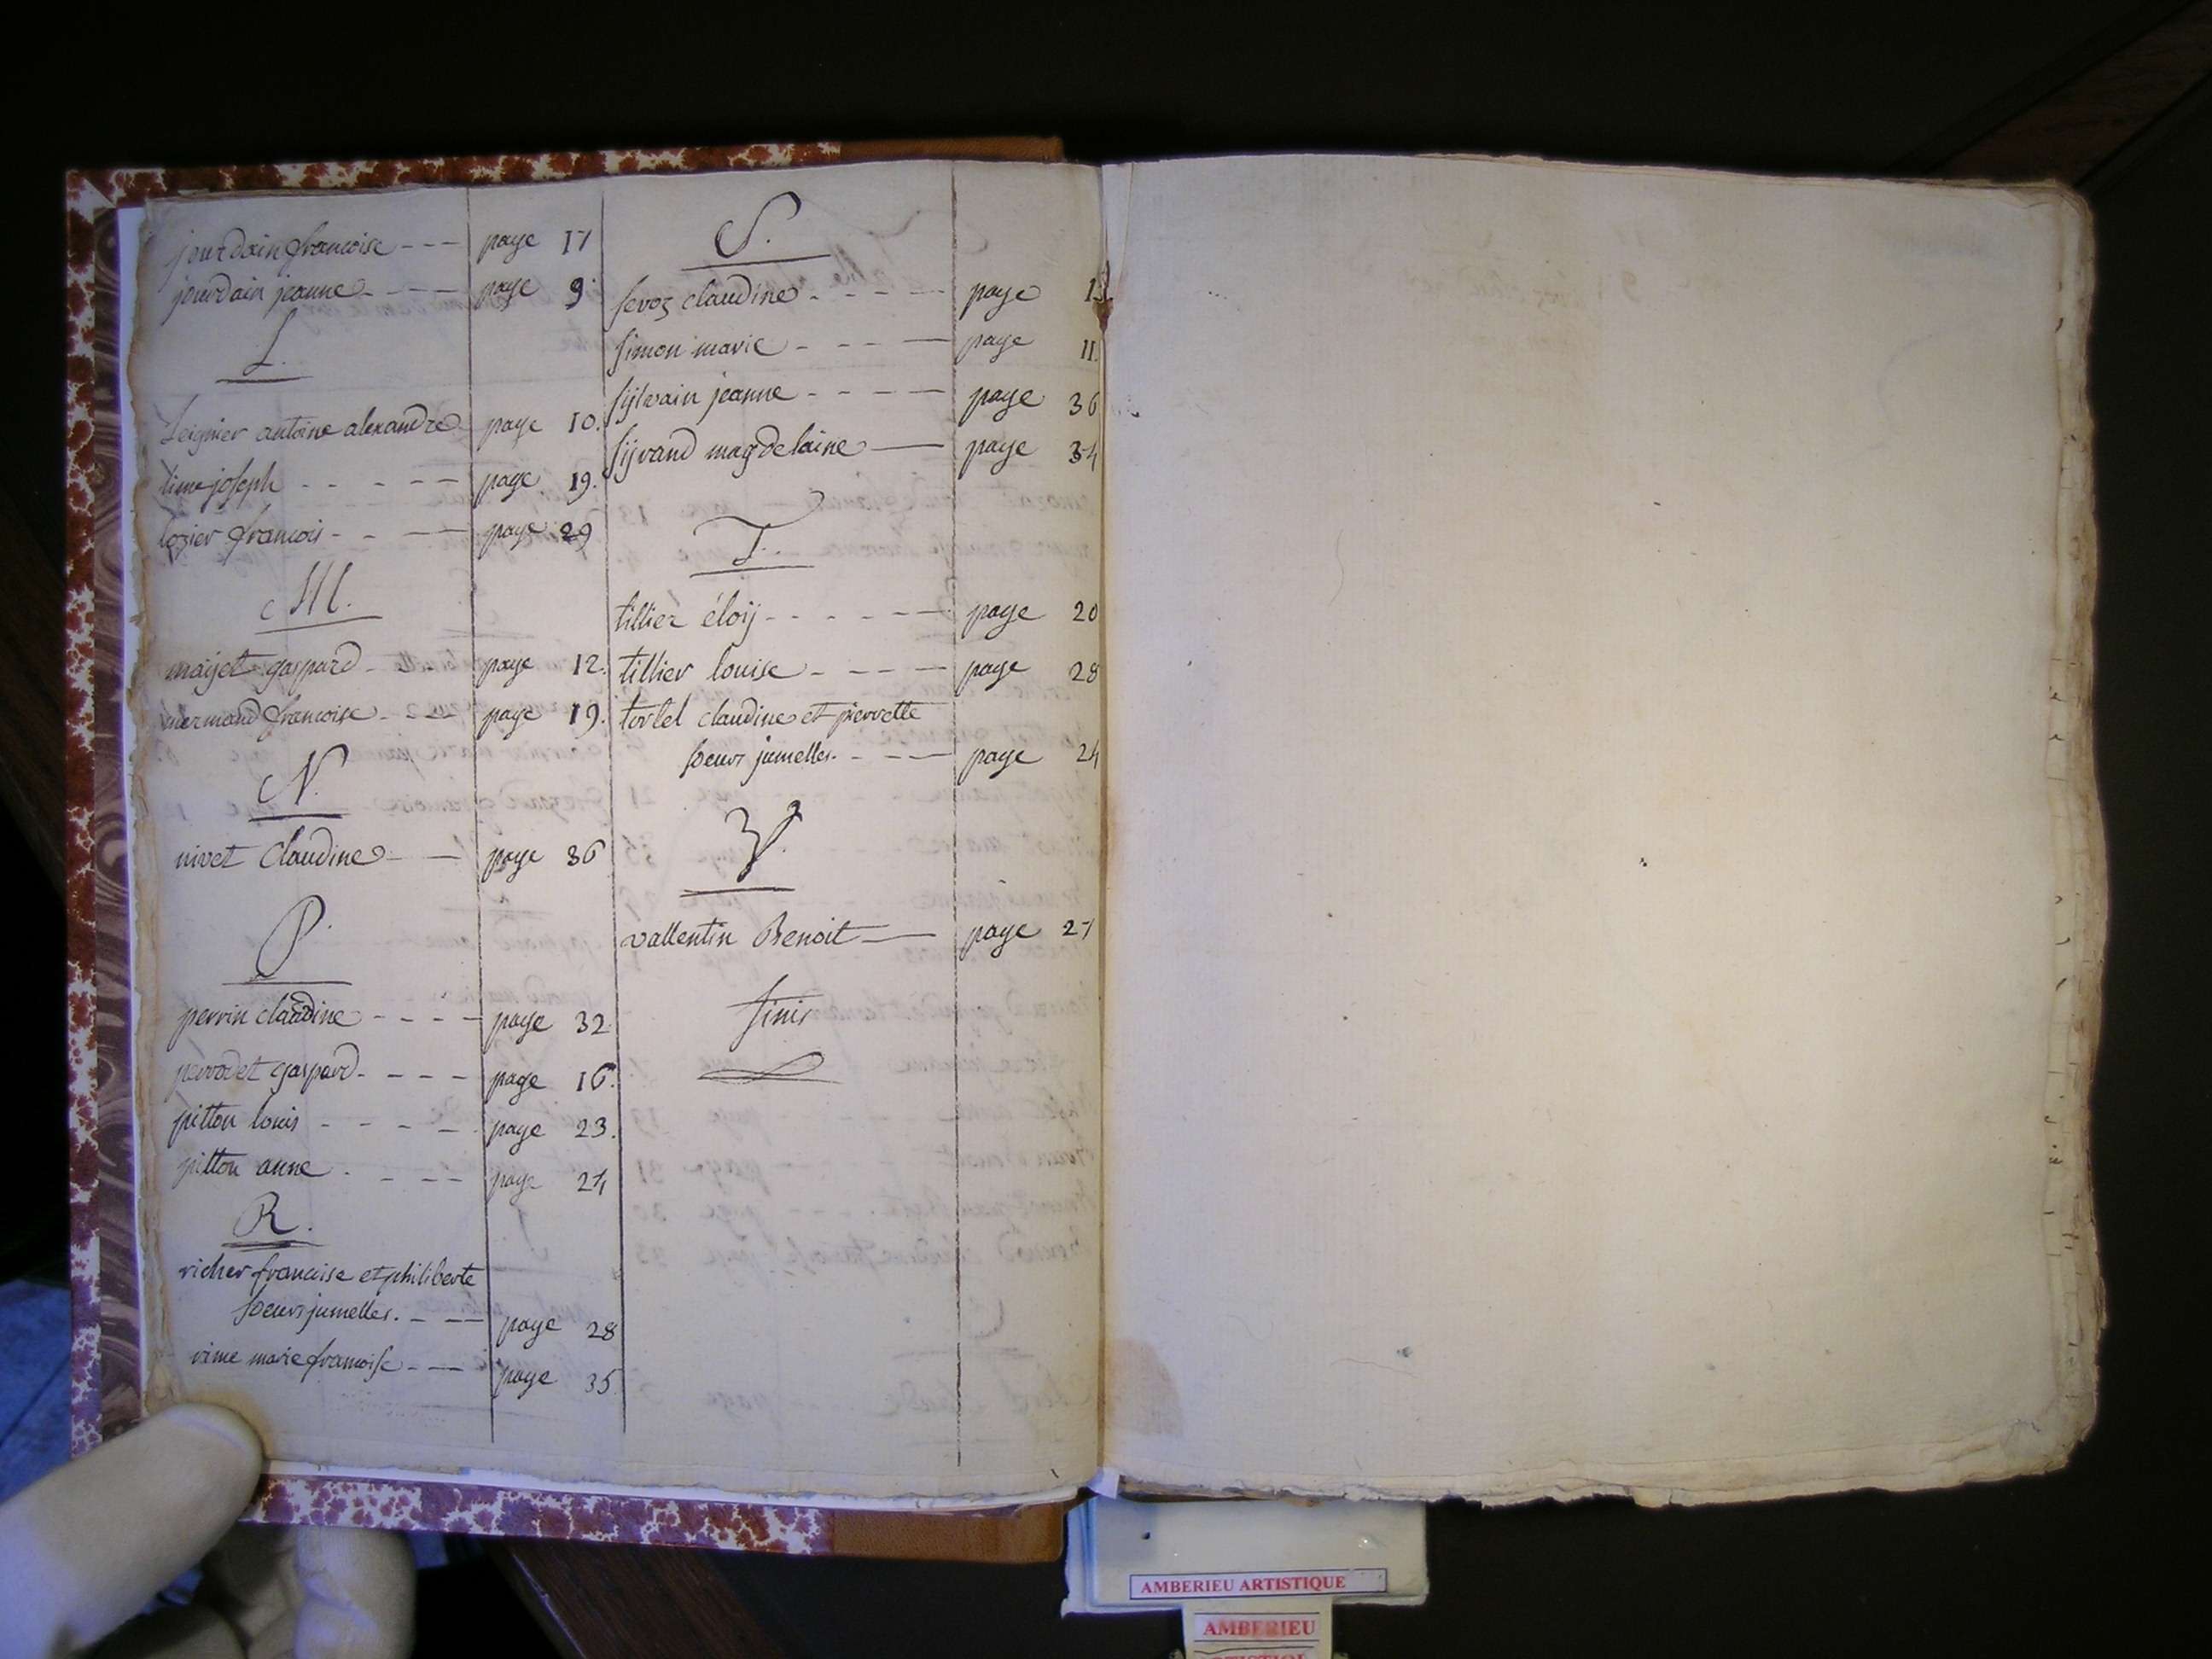 jourdain francoise - - - page 17
jourdain jeanne - - - page 9
L.
Leignier antoine alexandre page 10.
lime joseph - - - - - page 19.
lozier francois - - - - page 29
M.
maijet gaspard - - - page 12.
mermand francoise - - - page 19.
N.
nivet Claudine - - page 36
P.
perrin claudine - - - - page 32
perrodet gaspard - - - - page 16.
pitton louis - - - - - page 23.
pitton anne - - - - page 24
R.
richer francoise et philiberte
soeurs jumelles. - - - page 28
rime marie francoise - - - page 35
S.
sevoz claudine - - - - - page
simon marie - - - - page 11.
sijlvain jeanne - - - - - page 36
sijvand magdelaine — page 34
T.
tillier éloij - - - - - - page 20
tillier louise - - - - page 28
tortel claudine et pierrette
soeurs jumelles. - - - page 24
V.
vallentin Benoit — page 27
finis
AMBERIEU ARTISTIQUE
AMBERIEU
ARTISTIQUE